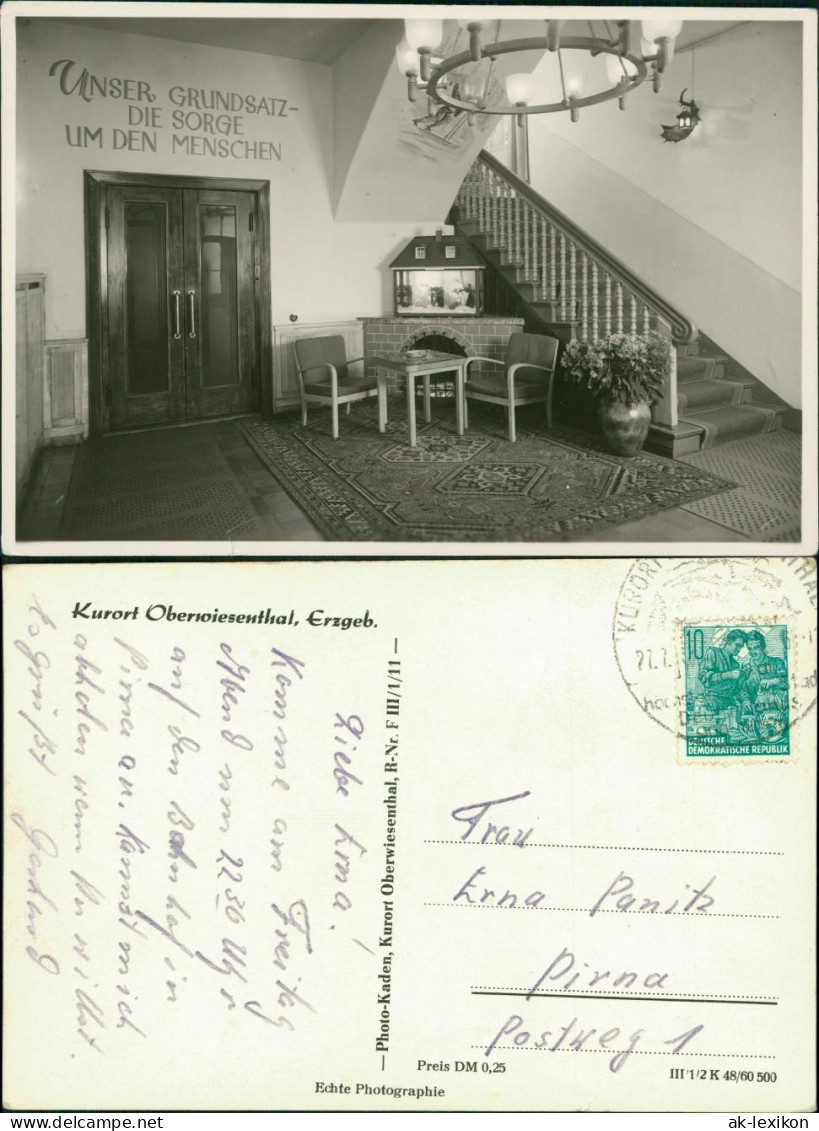 UNSER GRUNDSATZ-
DIE SORGE
UM DEN MENSCHEN
Kurort Oberwiesenthal, Erzgeb.
Liebe Erna!
Komme am Freitag
Abend um 22 30 Uhr
auf den Bahnhof in
Pirna an. Kannst mich
abholen wenn Du willst.
Es grüßt
Gerhard
— Photo-Kaden, Kurort Oberwiesenthal, R-Nr. F III/1/11 —
KURORT
THAL
27.7.
10
DEUTSCHE
DEMOKRATISCHE REPUBLIK
Frau
Erna Panitz
Pirna
Postweg 1
Preis DM 0,25
III/1/2 K 48/60 500
Echte Photographie
ak-lexikon